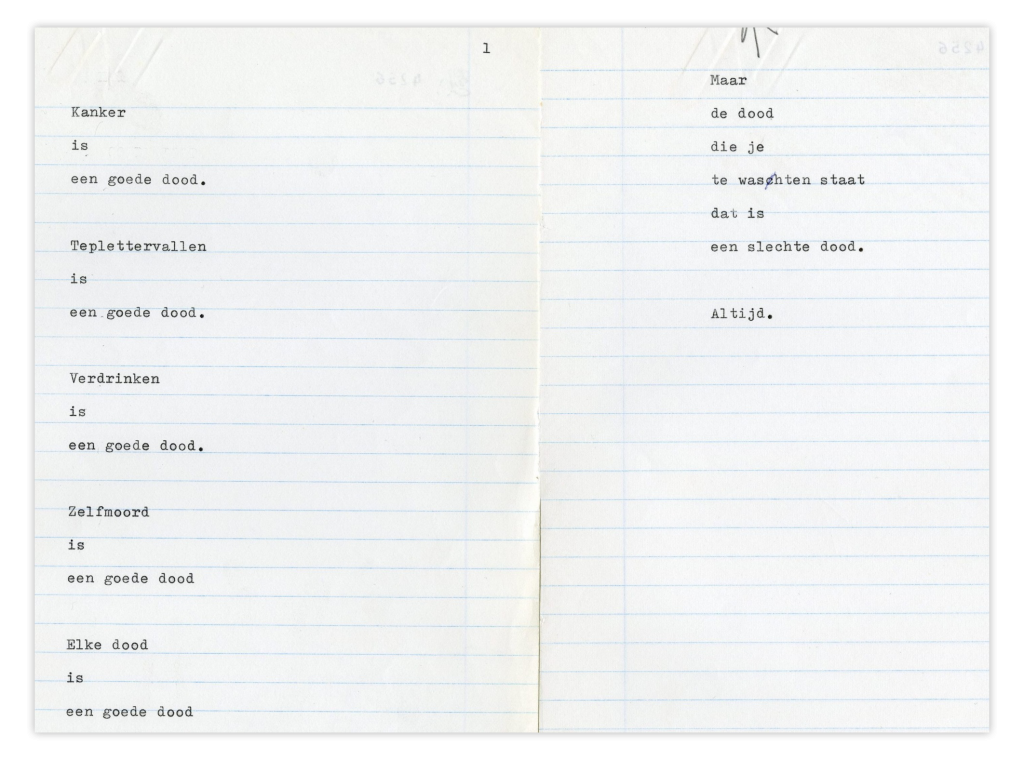 1
Kanker
is
een goede dood.
Teplettervallen
is
een goede dood.
Verdrinken
is
een goede dood.
Zelfmoord
is
een goede dood
Elke dood
is
een goede dood
Maar
de dood
die je
te waschten staat
dat is
een slechte dood.
Altijd.